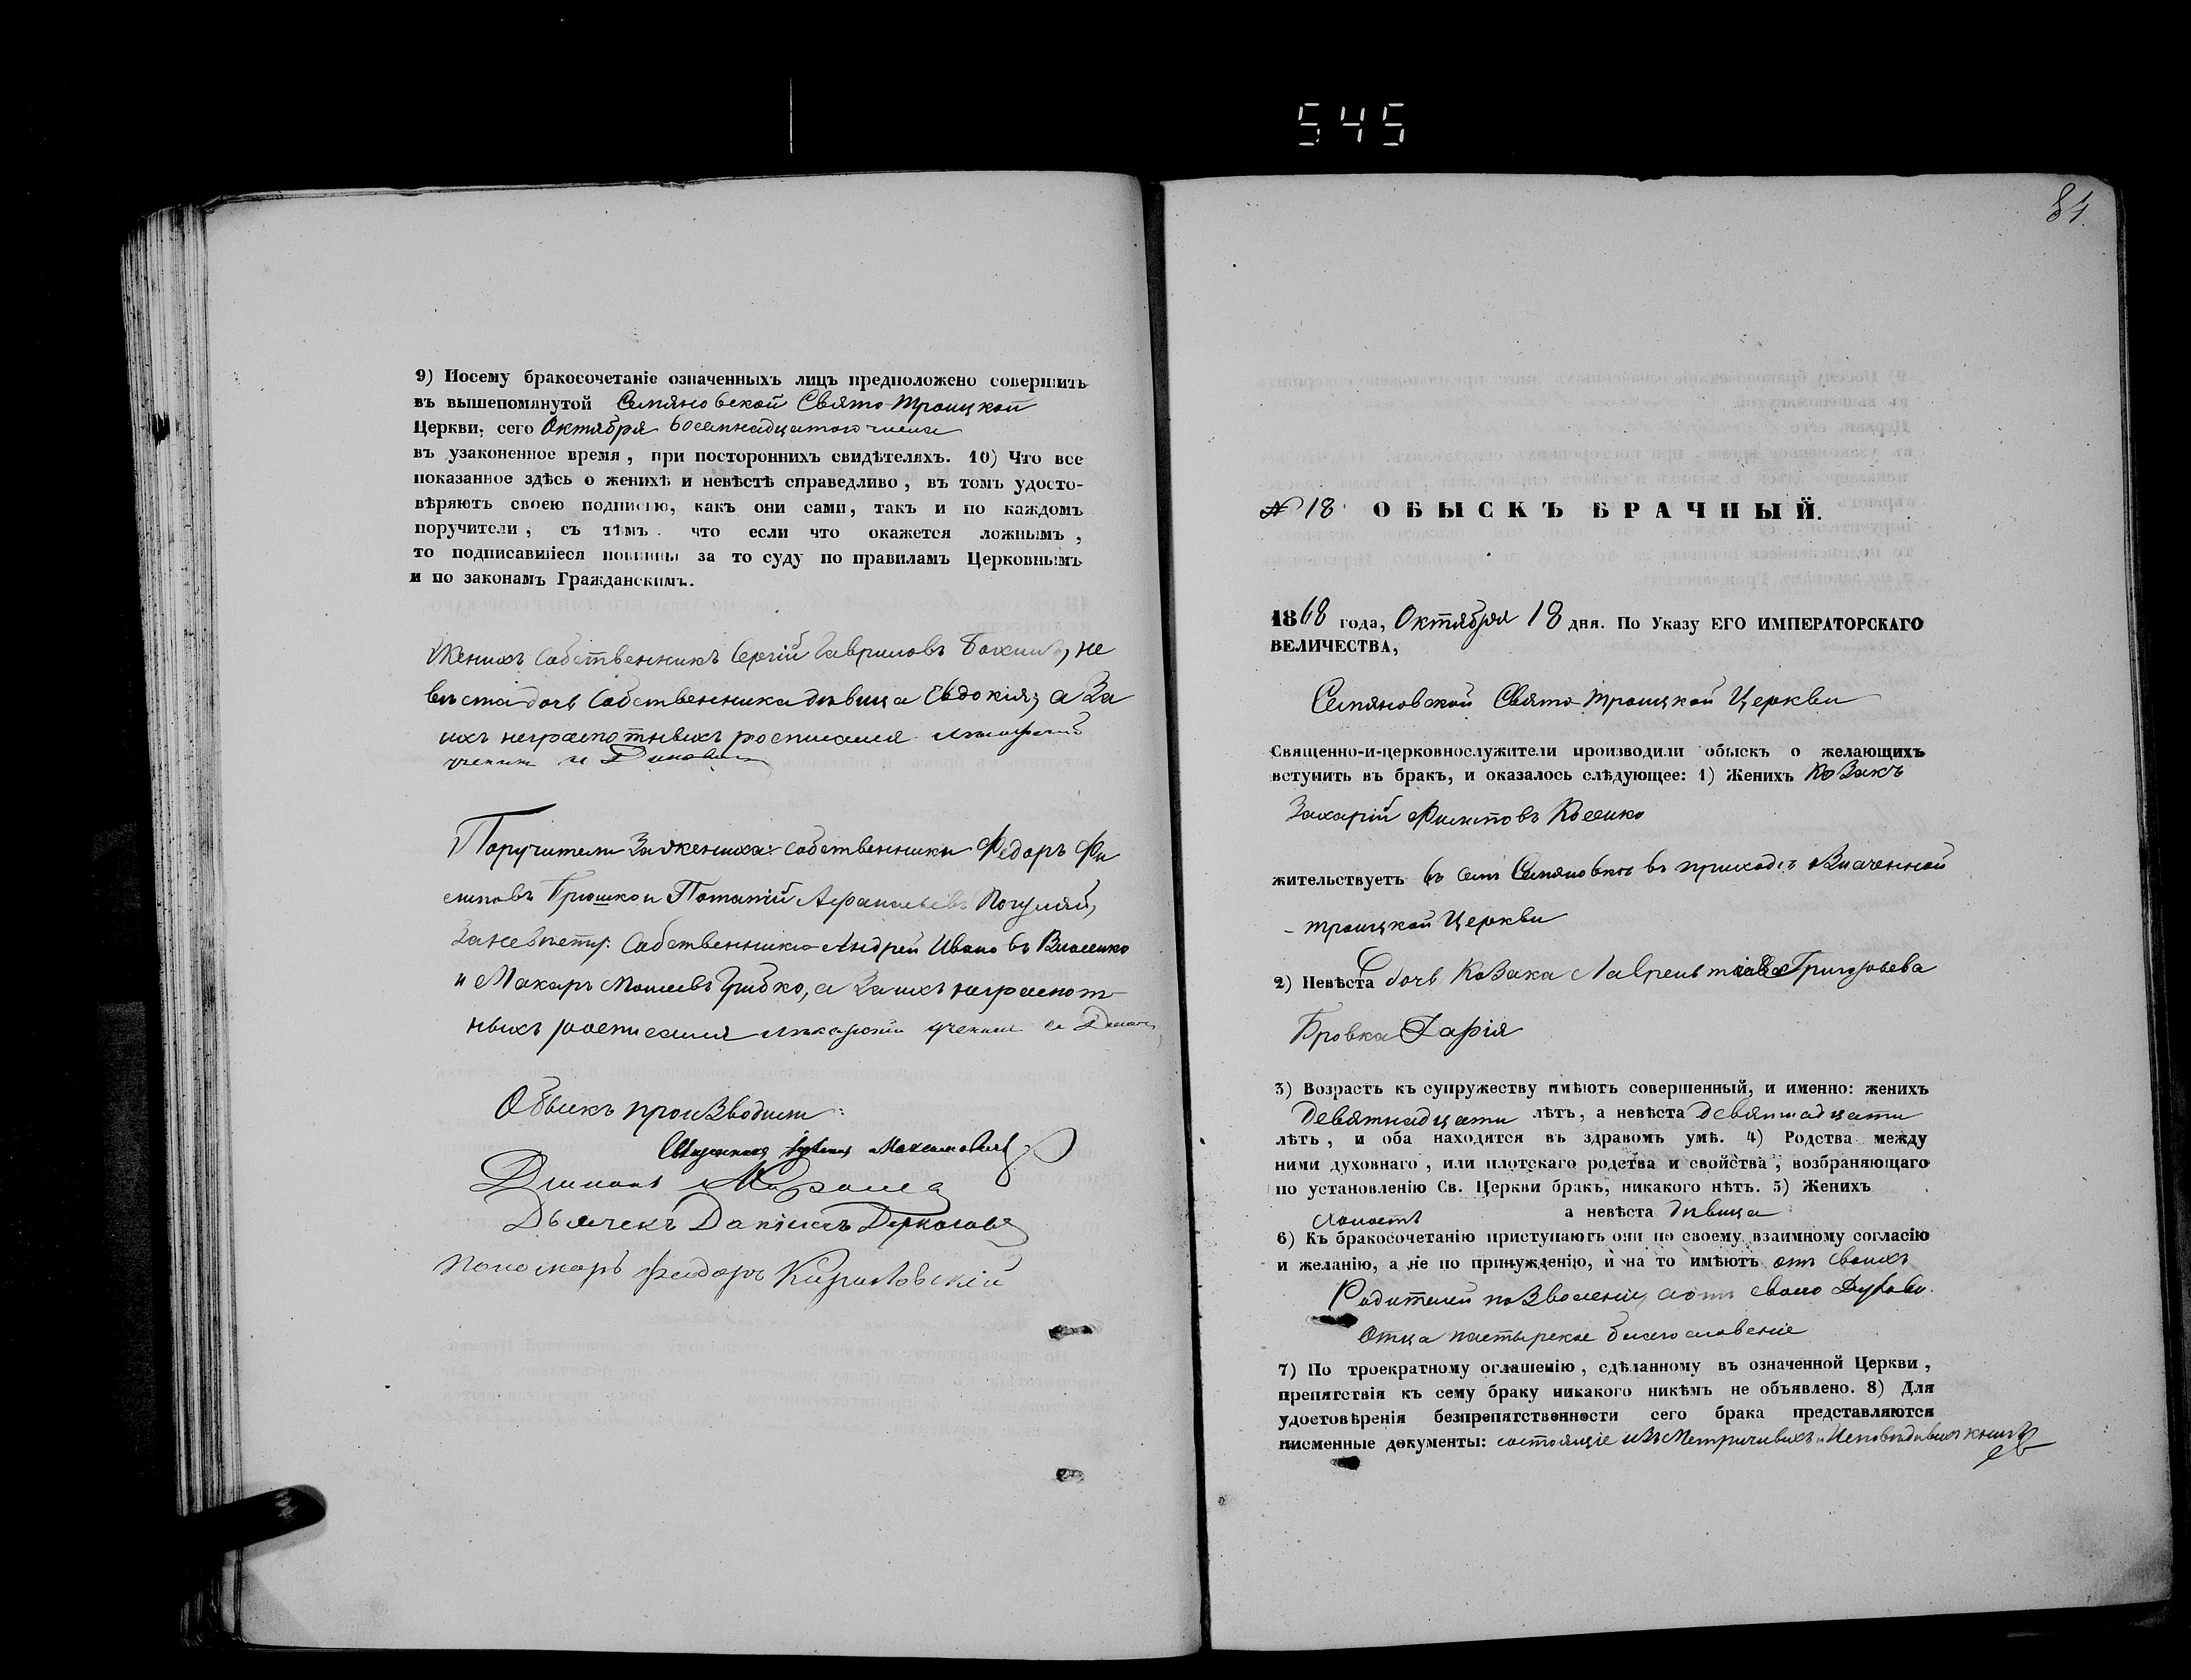 545
9) Посему бракосочетаніе означенныхъ лицъ предположено совершить
въ вышепомянутой Семяновской Свято-Троицкой
Церкви, сего Октября восемнадцатого числа
въ узаконенное время, при постороннихъ свидѣтеляхъ. 10) Что все
показанное здѣсь о женихѣ и невѣстѣ справедливо, въ томъ удосто-
вѣряютъ своею подписью, какъ они сами, такъ и по каждомъ
поручители, съ тѣмъ что если что окажется ложнымъ,
то подписавшіеся повинны за то суду по правиламъ Церковнымъ
и по законамъ Гражданскимъ.
Женихъ Собственникъ Сергій Гавриловъ не
вѣста дочь Собственника дѣвица Евдокія; а За
ихъ неграмотныхъ росписался
Поручители За жениха: собственники Федоръ Фи
липовъ Грюшко и Потапій Афанасьевъ
За невѣсту: Собственники Андрей Ивановъ Власенко
и Макаръ Грибко, а За ихъ неграмот-
ныхъ росписался
Обыскъ производили:
Священникъ Максимовичъ
Дьячекъ Даніилъ
Пономарь Феодоръ Кириловскій
84.
№ 18 ОБЫСКЪ БРАЧНЫЙ.
1868 года, Октября 18 дня. По Указу ЕГО ИМПЕРАТОРСКАГО
ВЕЛИЧЕСТВА,
Семяновской Свято-Троицкой Церкви
Священно-и-церковнослужители производили обыскъ о желающихъ
вступить въ бракъ, и оказалось слѣдующее: 1) Женихъ Козакъ
Захарій Филиповъ
жительствуетъ въ селѣ Семяновкѣ въ приходѣ означенной
- Троицкой Церкви
2) Невѣста дочь Козака Лаврентія Григорьева
Бровка Дарія
3) Возрастъ къ супружеству имѣютъ совершенный, и именно: женихъ
девятнадцати лѣтъ, а невѣста девятнадцати
лѣтъ, и оба находятся въ здравомъ умѣ. 4) Родства между
ними духовнаго, или плотскаго родства и свойства, возбраняющаго
по установленію Св. Церкви бракъ, никакого нѣтъ. 5) Женихъ
холостъ а невѣста дѣвица
6) Къ бракосочетанію приступаютъ они по своему взаимному согласію
и желанію, а не по принужденію, и на то имѣютъ отъ своихъ
Родителей позволеніе, а отъ своего Духовн.
Отца пастырское благословеніе
7) По троекратному оглашенію, сдѣланному въ означенной Церкви,
препятствія къ сему браку никакого никѣмъ не объявлено. 8) Для
удостовѣренія безпрепятственности сего брака представляются
писменные документы: состоящіе изъ Метричныхъ и Исповѣдныхъ книгъ